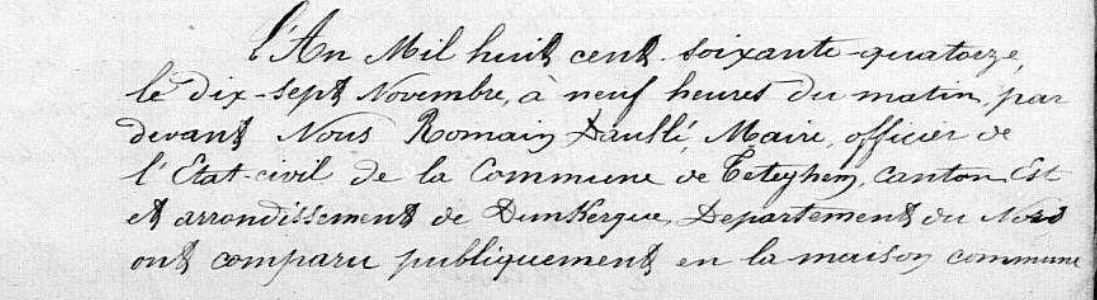 L'An Mil huit cent soixante-quatorze,
le dix-sept Novembre, à neuf heures du matin, par
devant Nous Romain Daullé, Maire, officier de
l'Etat-civil de la Commune de Téteghem, canton Est
et arrondissement de Dunkerque, Département du Nord
ont comparu publiquement en la maison commune